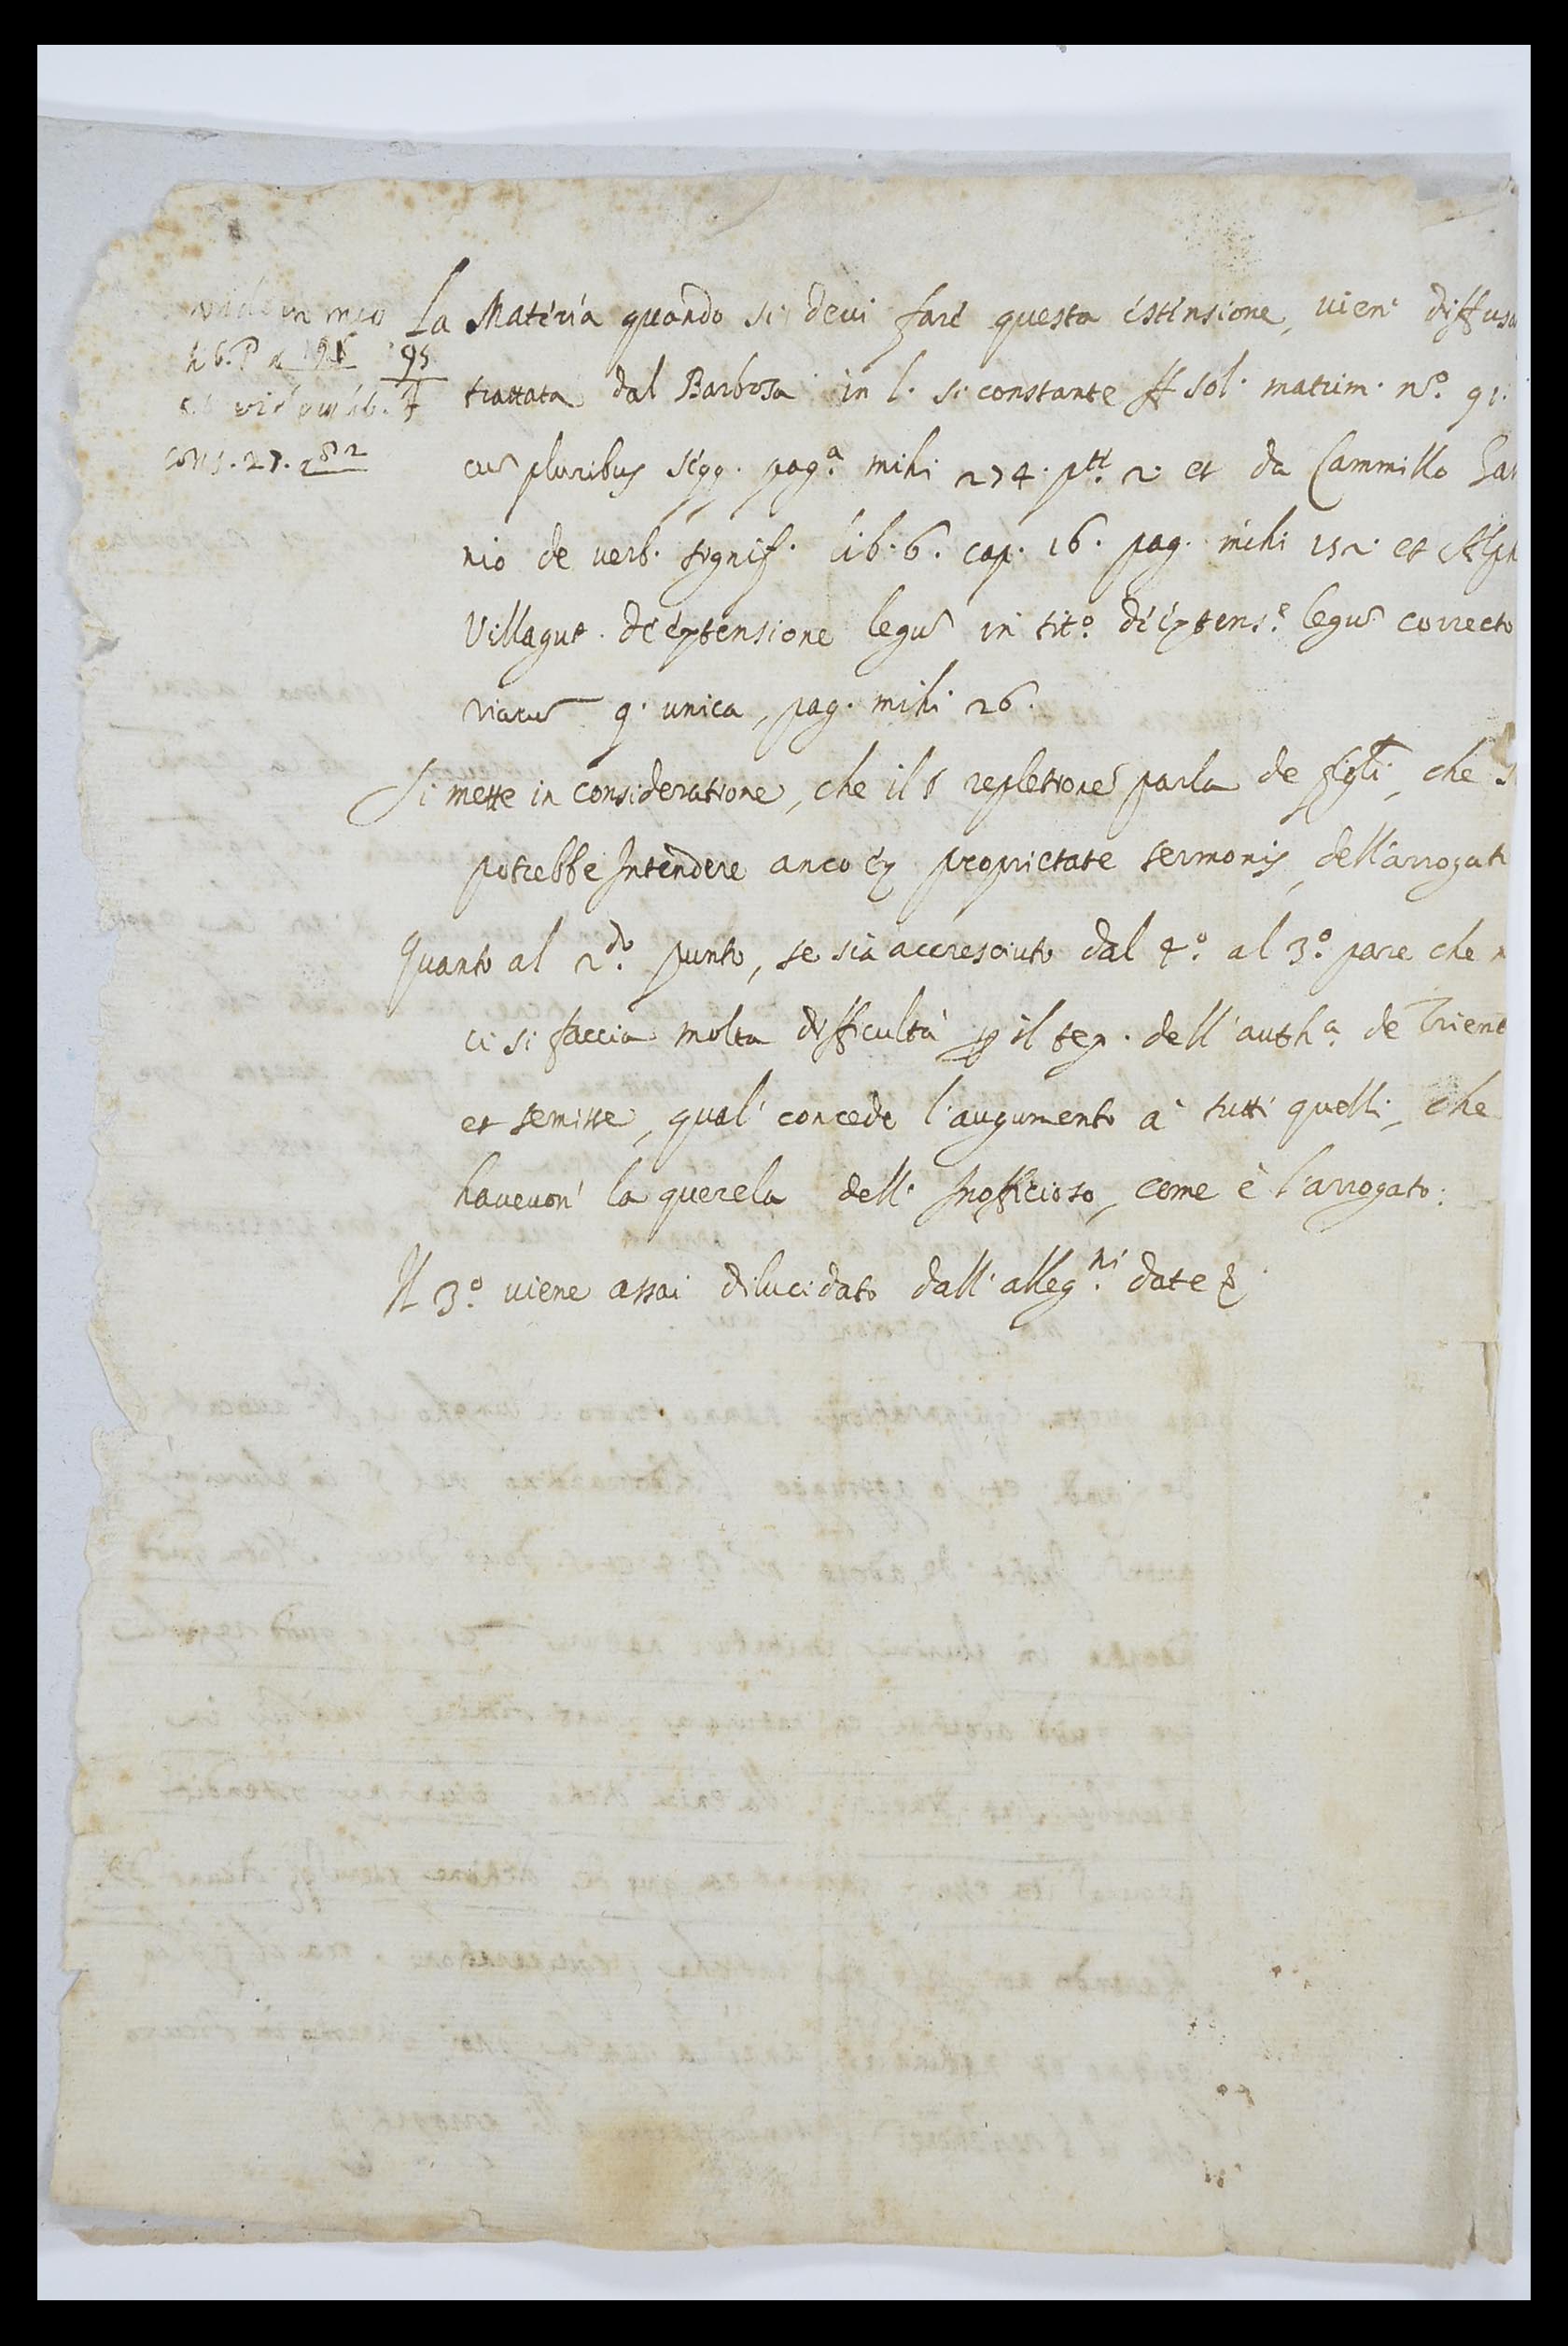 vide in meo
lib. P
cons. 27. 282
La Materia quando si devi fare questa estensione, vien' diffusa
trattata dal Barbosa in l. si constante ff sol. matrim. n.º 91.
cũ pluribus seqq. pag.ª mihi 274. p.te 2. et da Cammillo
nio de verb. signif. lib. 6. cap. 16. pag. mihi 152. et Alph
Villagut. de extensione legũ in tit.º de extens.e legũ correcto
riarũ q. unica, pag. mihi 26.
Si mette in consideratione, che il § repletionẽ parla de figli, che
potrebbe Intendere anco ex proprietate sermonis, dell'arrogat
Quanto al 2.do punto, se sia accresciuto dal 4.º al 3.º pare che
ci si faccia molta difficultà ꝑ il tex. dell'auth.ª de Trient
et semisse, qual' concede l'augumento à tutti quelli, che
havevon' la querela dell' Inofficioso, come è l'arrogato:
Il 3.º viene assai dilucidato dall'alleg.ni date &